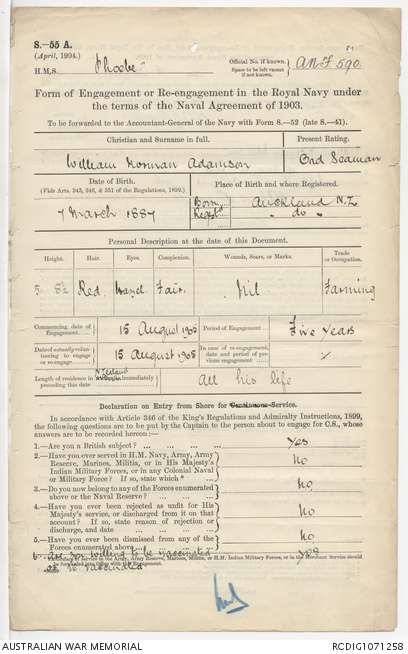 S.—55 A.
(April, 1904.)
H.M.S. Phoebe
Official No. if known.
Space to be left vacant
if not known.
ANF 590
Form of Engagement or Re-engagement in the Royal Navy under
the terms of the Naval Agreement of 1903.
To be forwarded to the Accountant-General of the Navy with Form S.—52 (late S.—51).
Christian and Surname in full. Present Rating.
William Norman Adamson Ord Seaman
Date of Birth. Place of Birth and where Registered.
(Vide Arts. 343, 348, & 351 of the Regulations, 1899.)
7 March 1887
Born Auckland N.Z.
Regist'd " do "
Personal Description at the date of this Document.
Height. Hair. Eyes. Complexion. Wounds, Scars, or Marks. Trade or Occupation.
5 8½ Red Hazel Fair Nil Farming
Commencing date of Engagement 15 August 1905 Period of Engagement Five Years
Date of actually volunteering to engage or re-engage 15 August 1905 In case of re-engagement, date and period of previous engagement
Length of residence in N Zealand immediately preceding this date All his life
Declaration on Entry from Shore for Continuous Service.
In accordance with Article 346 of the King's Regulations and Admiralty Instructions, 1899,
the following questions are to be put by the Captain to the person about to engage for C.S., whose
answers are to be recorded hereon:—
1.—Are you a British subject? Yes
2.—Have you ever served in H.M. Navy, Army, Army
Reserve, Marines, Militia, or in His Majesty's
Indian Military Forces, or in any Colonial Naval
or Military Force? If so, state which* No
3.—Do you now belong to any of the Forces enumerated
above or the Naval Reserve? No
4.—Have you ever been rejected as unfit for His
Majesty's service, or discharged from it on that
account? If so, state reason of rejection or
discharge, and date No
5.—Have you ever been dismissed from any of the
Forces enumerated above No
6. Are you willing to be vaccinated yes
or re vaccinated
AUSTRALIAN WAR MEMORIAL
RCDIG1071258